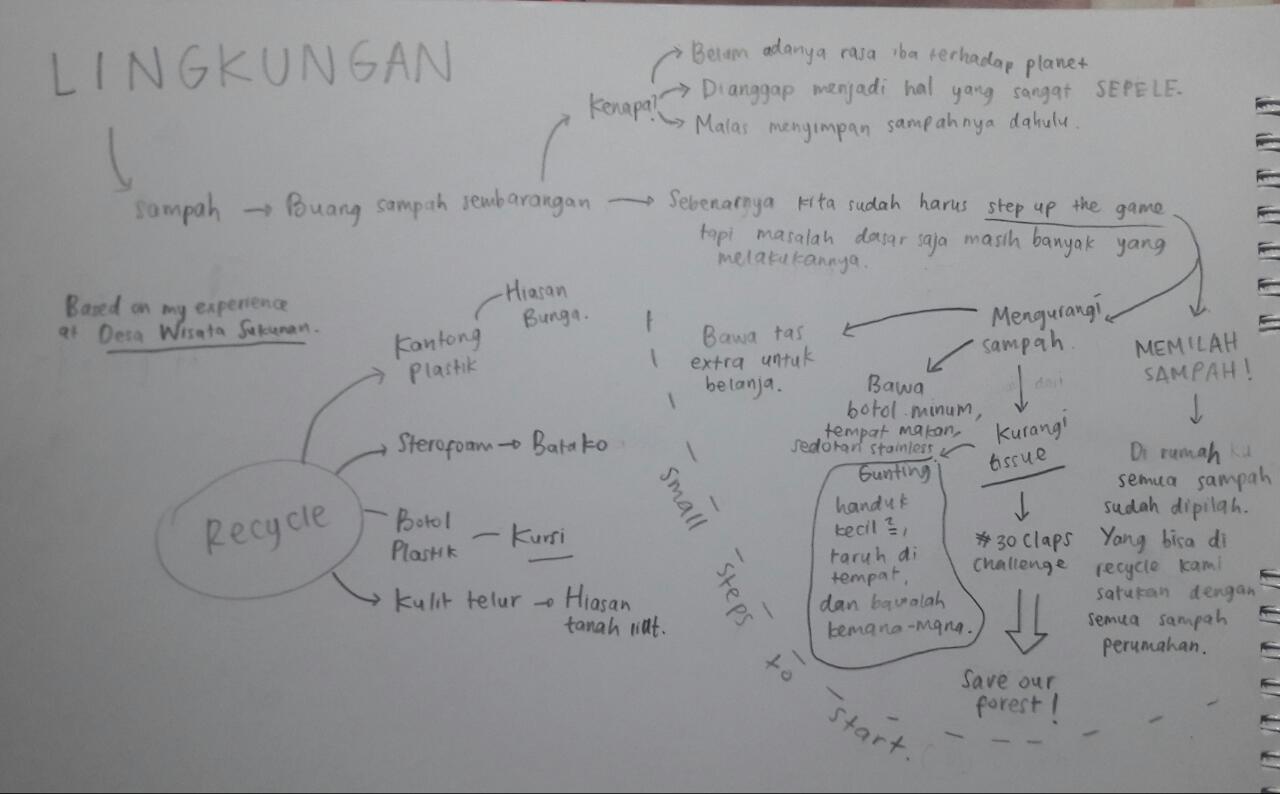 LINGKUNGAN
Kenapa?
Belum adanya rasa iba terhadap planet
Dianggap menjadi hal yang sangat SEPELE.
Malas menyimpan sampahnya dahulu.
Sampah → Buang sampah sembarangan → Sebenarnya kita sudah harus step up the game
tapi masalah dasar saja masih banyak yang
melakukannya.
Based on my experience
at Desa Wisata Sukunan.
Recycle
Kantong
Plastik
Hiasan
Bunga.
Sterofoam → Batako
Botol
Plastik
Kursi
Kulit telur → Hiasan
tanah liat.
small steps to start.
Mengurangi
sampah.
Bawa tas
extra untuk
belanja.
Bawa
botol minum,
tempat makan,
sedotan stainless
dari
Kurangi
tissue
Gunting
handuk
kecil ²=,
taruh di
tempat,
dan bawalah
kemana-mana.
#30 claps
challenge
Save our
forest!
MEMILAH
SAMPAH!
Di rumah ku
semua sampah
sudah dipilah.
Yang bisa di
recycle kami
satukan dengan
semua sampah
perumahan.